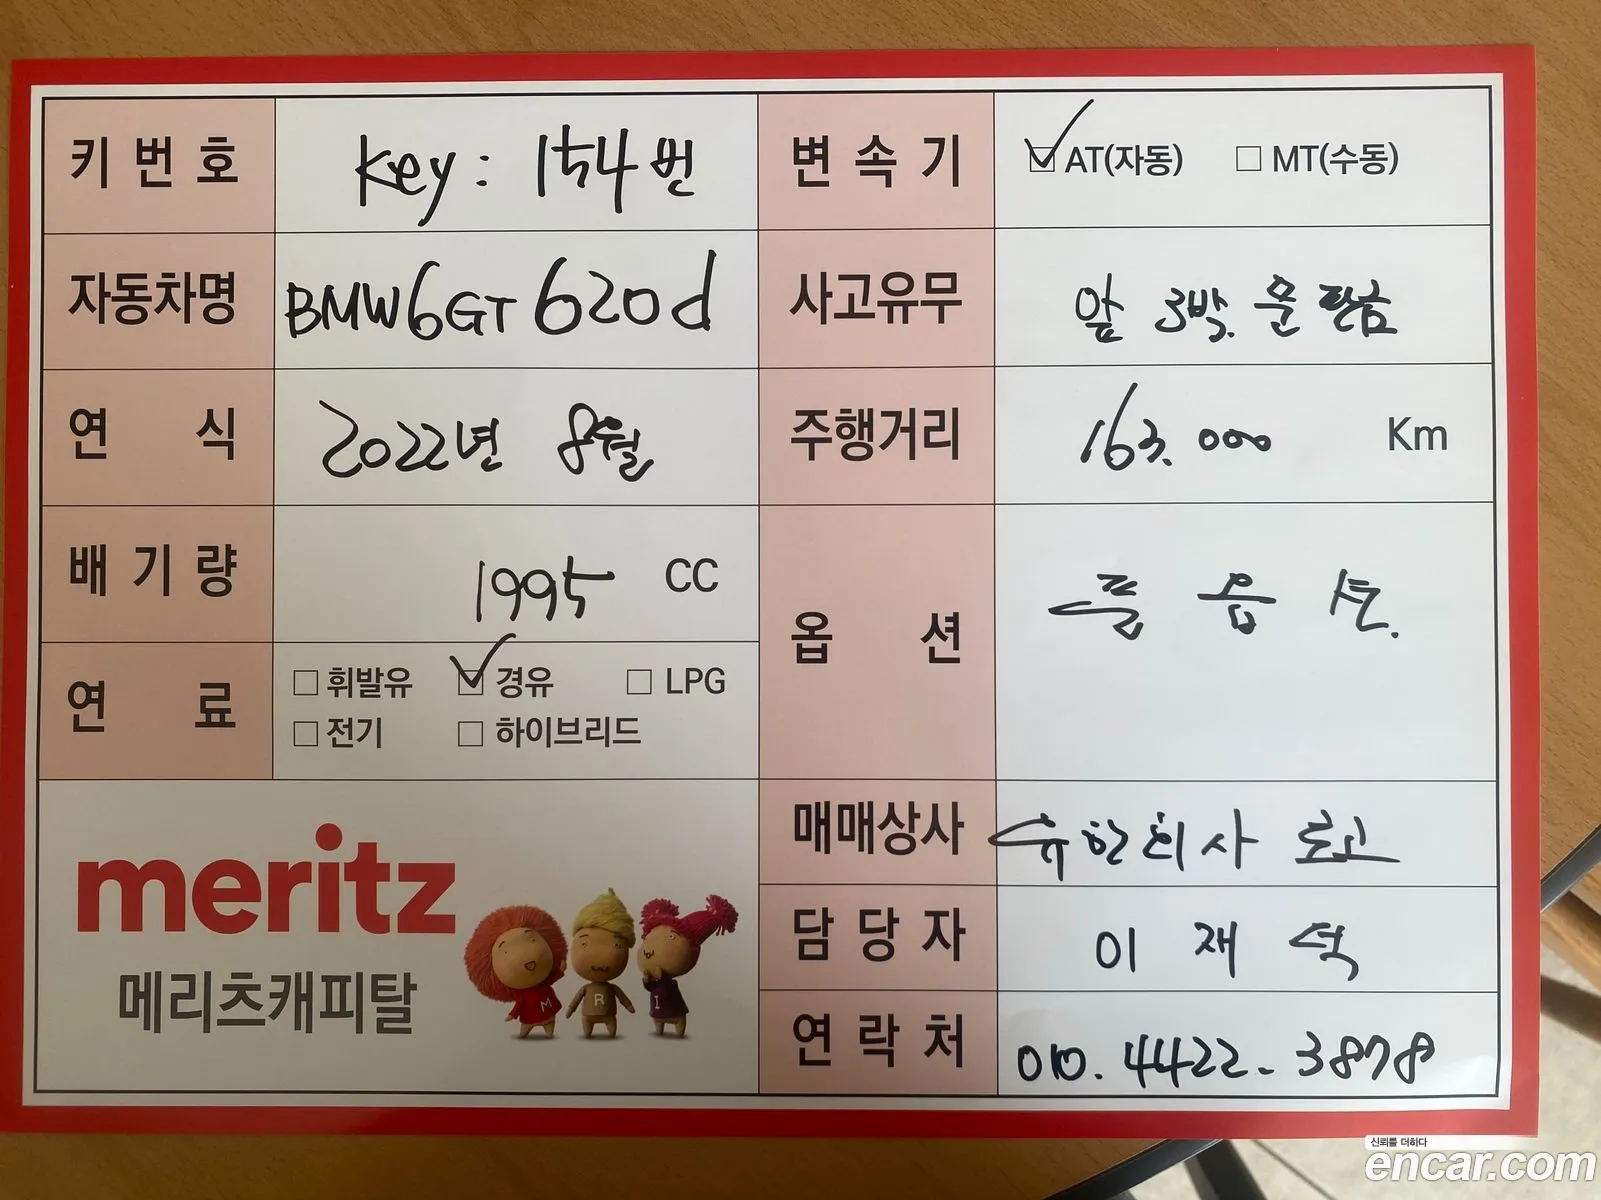 키 번 호 Key : 154번
변 속 기 AT(자동) MT(수동)
자동차명 BMW 6GT 620d
사고유무 앞 3박. 문 판금
연 식 2022년 8월
주행거리 163.000 Km
배 기 량 1995 CC
옵 션 풀 옵 션.
연 료 휘발유 경유 LPG
전기 하이브리드
매매상사 유한회사 로고
meritz
메리츠캐피탈
M R I
담 당 자 이 재 석
연 락 처 010. 4422- 3878
신뢰를 더하다
encar.com